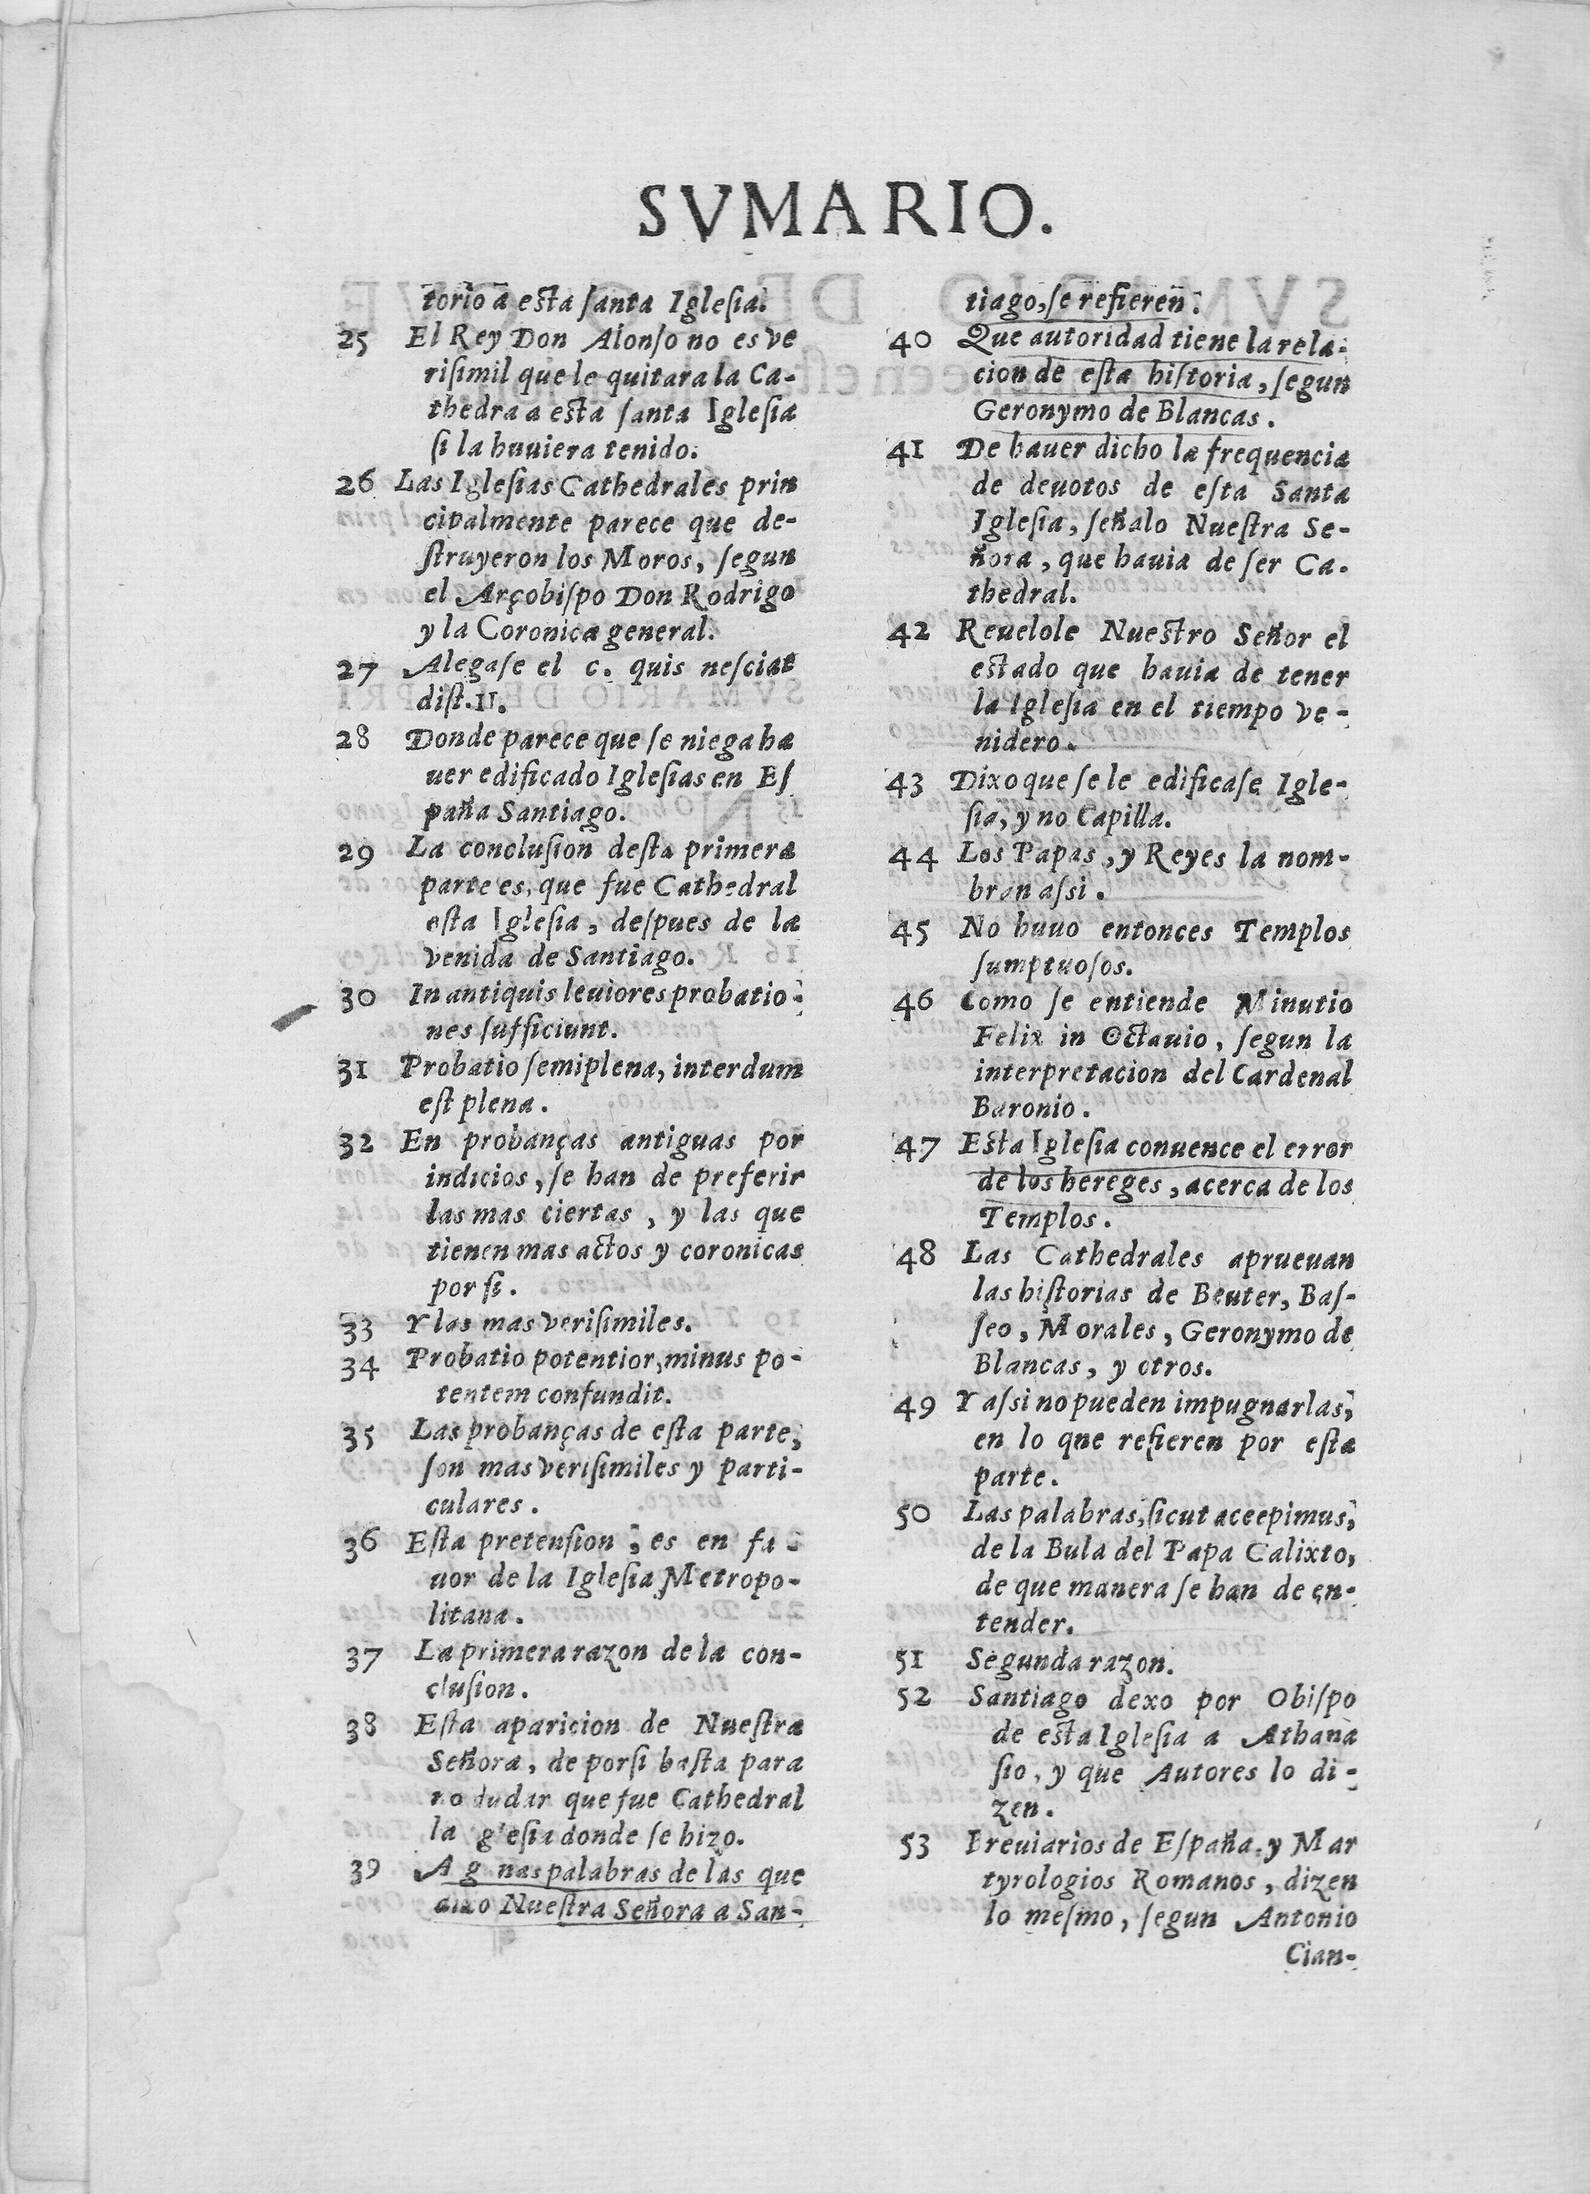 SVMARIO.
torio a esta santa Iglesia.
25 El Rey Don Alonso no es ve
risimil que le quitara la Ca-
thedra a esta santa Iglesia
si la huuiera tenido.
26 Las Iglesias Cathedrales prin
cipalmente parece que de-
struyeron los Moros, segun
el Arçobispo Don Rodrigo
y la Coronica general.
27 Alegase el c. quis nesciat
dist.11.
28 Donde parece que se niega ha
uer edificado Iglesias en Es
paña Santiago.
29 La conclusion desta primera
parte es, que fue Cathedral
esta Iglesia, despues de la
venida de Santiago.
30 In antiquis leuiores probatio-
nes sufficiunt.
31 Probatio semiplena, interdum
est plena.
32 En probanças antiguas por
indicios, se han de preferir
las mas ciertas, y las que
tienen mas actos y coronicas
por si.
33 Y las mas verisimiles.
34 Probatio potentior, minus po-
tentem confundit.
35 Las probanças de esta parte,
son mas verisimiles y parti-
culares.
36 Esta pretension, es en fa-
uor de la Iglesia Metropo-
litana.
37 La primera razon de la con-
clusion.
38 Esta aparicion de Nuestra
Señora, de porsi basta para
no dudar que fue Cathedral
la glesia donde se hizo.
39 A g nas palabras de las que
dixo Nuestra Señora a San-
tiago, se refieren.
40 Que autoridad tiene la rela-
cion de esta historia, segun
Geronymo de Blancas.
41 De hauer dicho la frequencia
de deuotos de esta Santa
Iglesia, señalo Nuestra Se-
ñora, que hauia de ser Ca-
thedral.
42 Reuelole Nuestro Señor el
estado que hauia de tener
la Iglesia en el tiempo ve-
nidero.
43 Dixo que se le edificase Igle-
sia, y no Capilla.
44 Los Papas, y Reyes la nom-
bran assi.
45 No huuo entonces Templos
sumptuosos.
46 Como se entiende Minutio
Felix in Octauio, segun la
interpretacion del Cardenal
Baronio.
47 Esta Iglesia conuence el error
de los hereges, acerca de los
Templos.
48 Las Cathedrales aprueuan
las historias de Beuter, Bas-
seo, Morales, Geronymo de
Blancas, y otros.
49 Y assi no pueden impugnarlas,
en lo que refieren por esta
parte.
50 Las palabras, sicut aceepimus,
de la Bula del Papa Calixto,
de que manera se han de en-
tender.
51 Segunda razon.
52 Santiago dexo por Obispo
de esta Iglesia a Athana
sio, y que Autores lo di-
zen.
53 Breuiarios de España, y Mar
tyrologios Romanos, dizen
lo mesmo, segun Antonio
Cian-